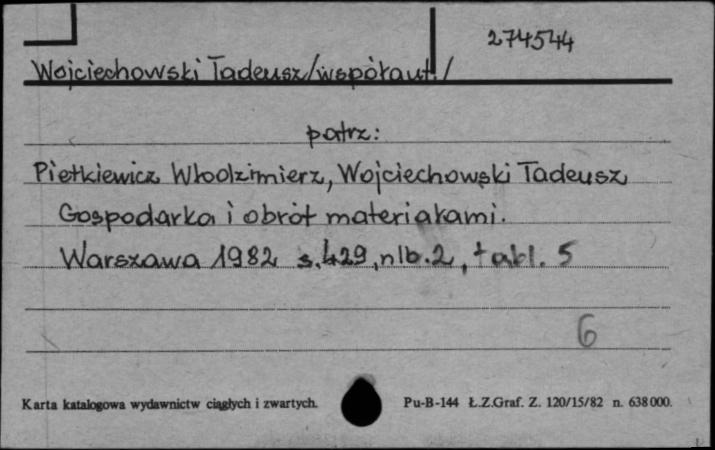 274544
Wojciechowski Tadeusz/współaut./
patrz:
Pietkiewicz Włodzimierz, Wojciechowski Tadeusz
Gospodarka i obrót materiałami.
Warszawa 1982 s.429, nlb.2, tabl. 5
6
Karta katalogowa wydawnictw ciągłych i zwartych. Pu-B-144 Ł.Z.Graf. Z. 120/15/82 n. 638000.